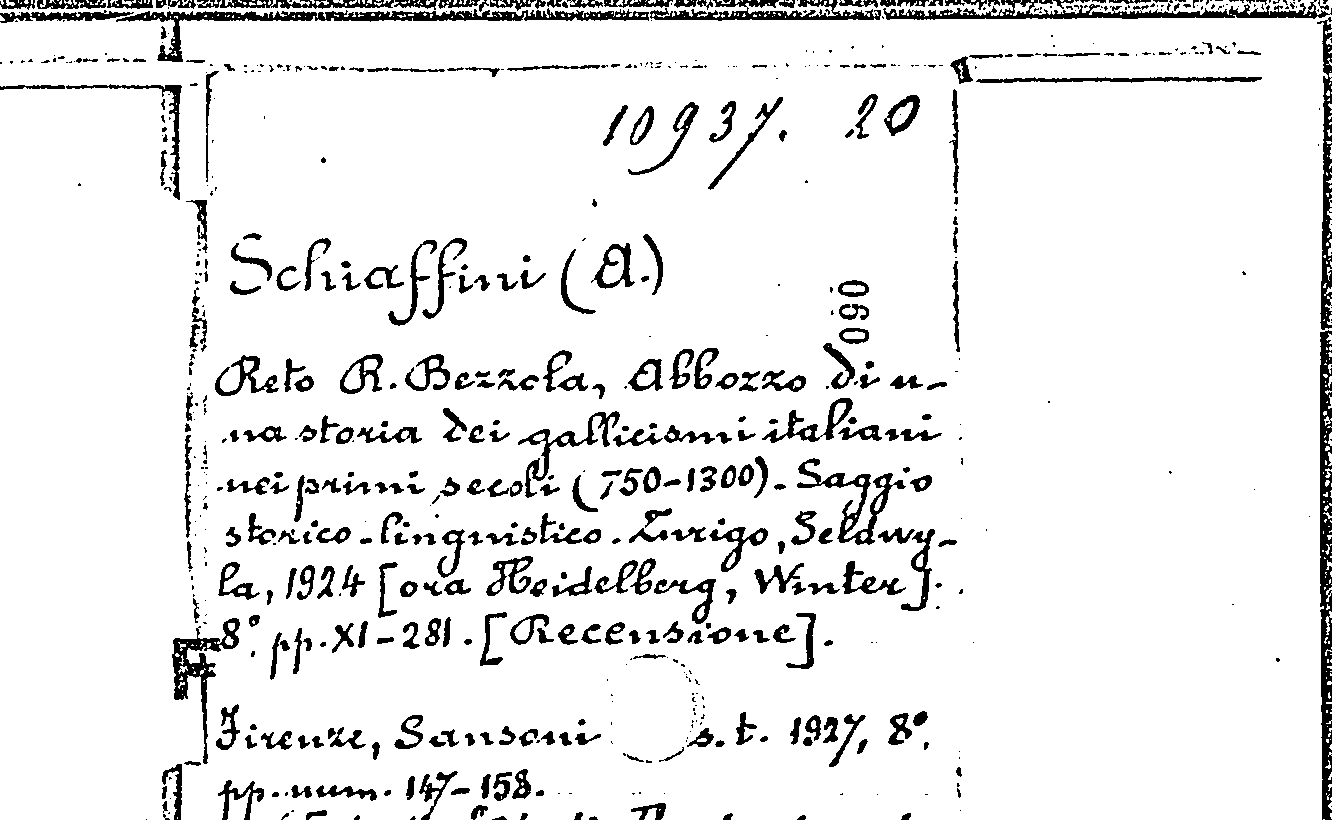 10937. 20
Schiaffini (A.)
090
Reto R. Bezzola, Abbozzo di u-
na storia dei gallicismi italiani
nei primi secoli (750-1300). Saggio
storico-linguistico. Zurigo, Seldwy-
la, 1924 [ora Heidelberg, Winter].
8°. pp. XI-281. [Recensione].
Firenze, Sansoni s. t. 1927, 8°.
pp. num. 147-158.